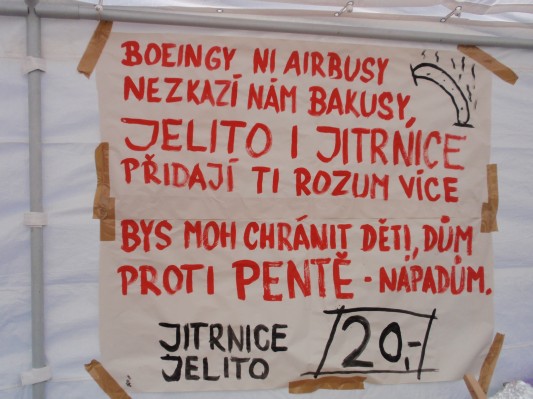 BOEINGY NI AIRBUSY
NEZKAZÍ NÁM BAKUSY,
JELITO I JITRNICE
PŘIDAJÍ TI ROZUM VÍCE
BYS MOH CHRÁNIT DĚTI, DŮM
PROTI PENTĚ - NÁPADŮM.
JITRNICE 20,-
JELITO